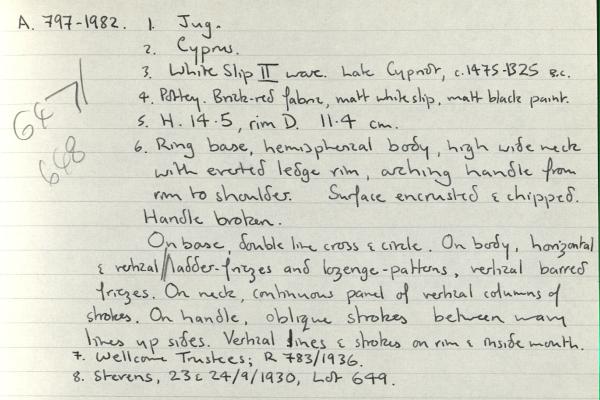 A. 797-1982. 1. Jug.
2. Cyprus.
3. White Slip II ware. Late Cypriot, c.1475-1325 B.C.
4. Pottery. Brick-red fabric, matt white slip, matt black paint.
64
5. H. 14.5, rim D. 11.4 cm.
648
6. Ring base, hemispherical body, high wide neck
with everted ledge rim, arching handle from
rim to shoulder. Surface encrusted & chipped.
Handle broken.
On base, double line cross & circle. On body, horizontal
& vertical ladder-friezes and lozenge-patterns, vertical barred
friezes. On neck, continuous panel of vertical columns of
strokes. On handle, oblique strokes between wavy
lines up sides. Vertical lines & strokes on rim & inside mouth.
7. Wellcome Trustees; R 783/1936.
8. Stevens, 23 & 24/9/1930, Lot 649.